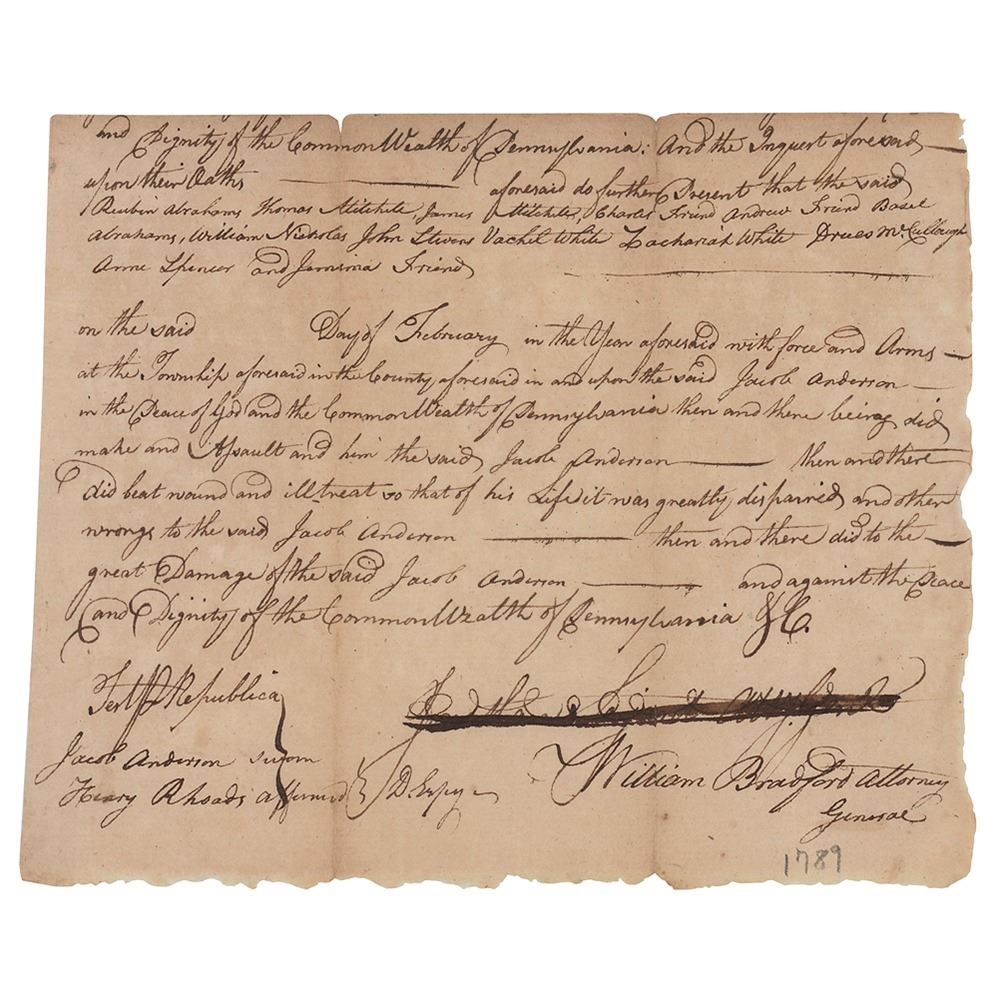 and Dignity of the CommonWealth of Pennsylvania: And the Inquest aforesaid
upon their Oaths aforesaid do further Present that the said
Reubin Abrahams Thomas Mitchile, James Mitchile, Charles Friend Andrew Friend Basel
Abrahams, William Nicholas John Stevens Vachel White Zachariah White McCullough
Anne Spencer and Jemima Friend
on the said Day of February in the Year aforesaid with force and Arms
at the Township aforesaid in the County aforesaid in and upon the said Jacob Anderson
in the Peace of God and the CommonWealth of Pennsylvania then and there being did
make and Assault and him the said Jacob Anderson then and there
did beat wound and ill treat so that of his Life it was greatly dispaired and other
wrongs to the said Jacob Anderson then and there did to the
great Damage of the said Jacob Anderson and against the Peace
and Dignity of the CommonWealth of Pennsylvania &C.
Test P Republica
Jacob Anderson sworn
Henry Rhoads affirmed D. Espy
William Bradford Attorney
General
1789